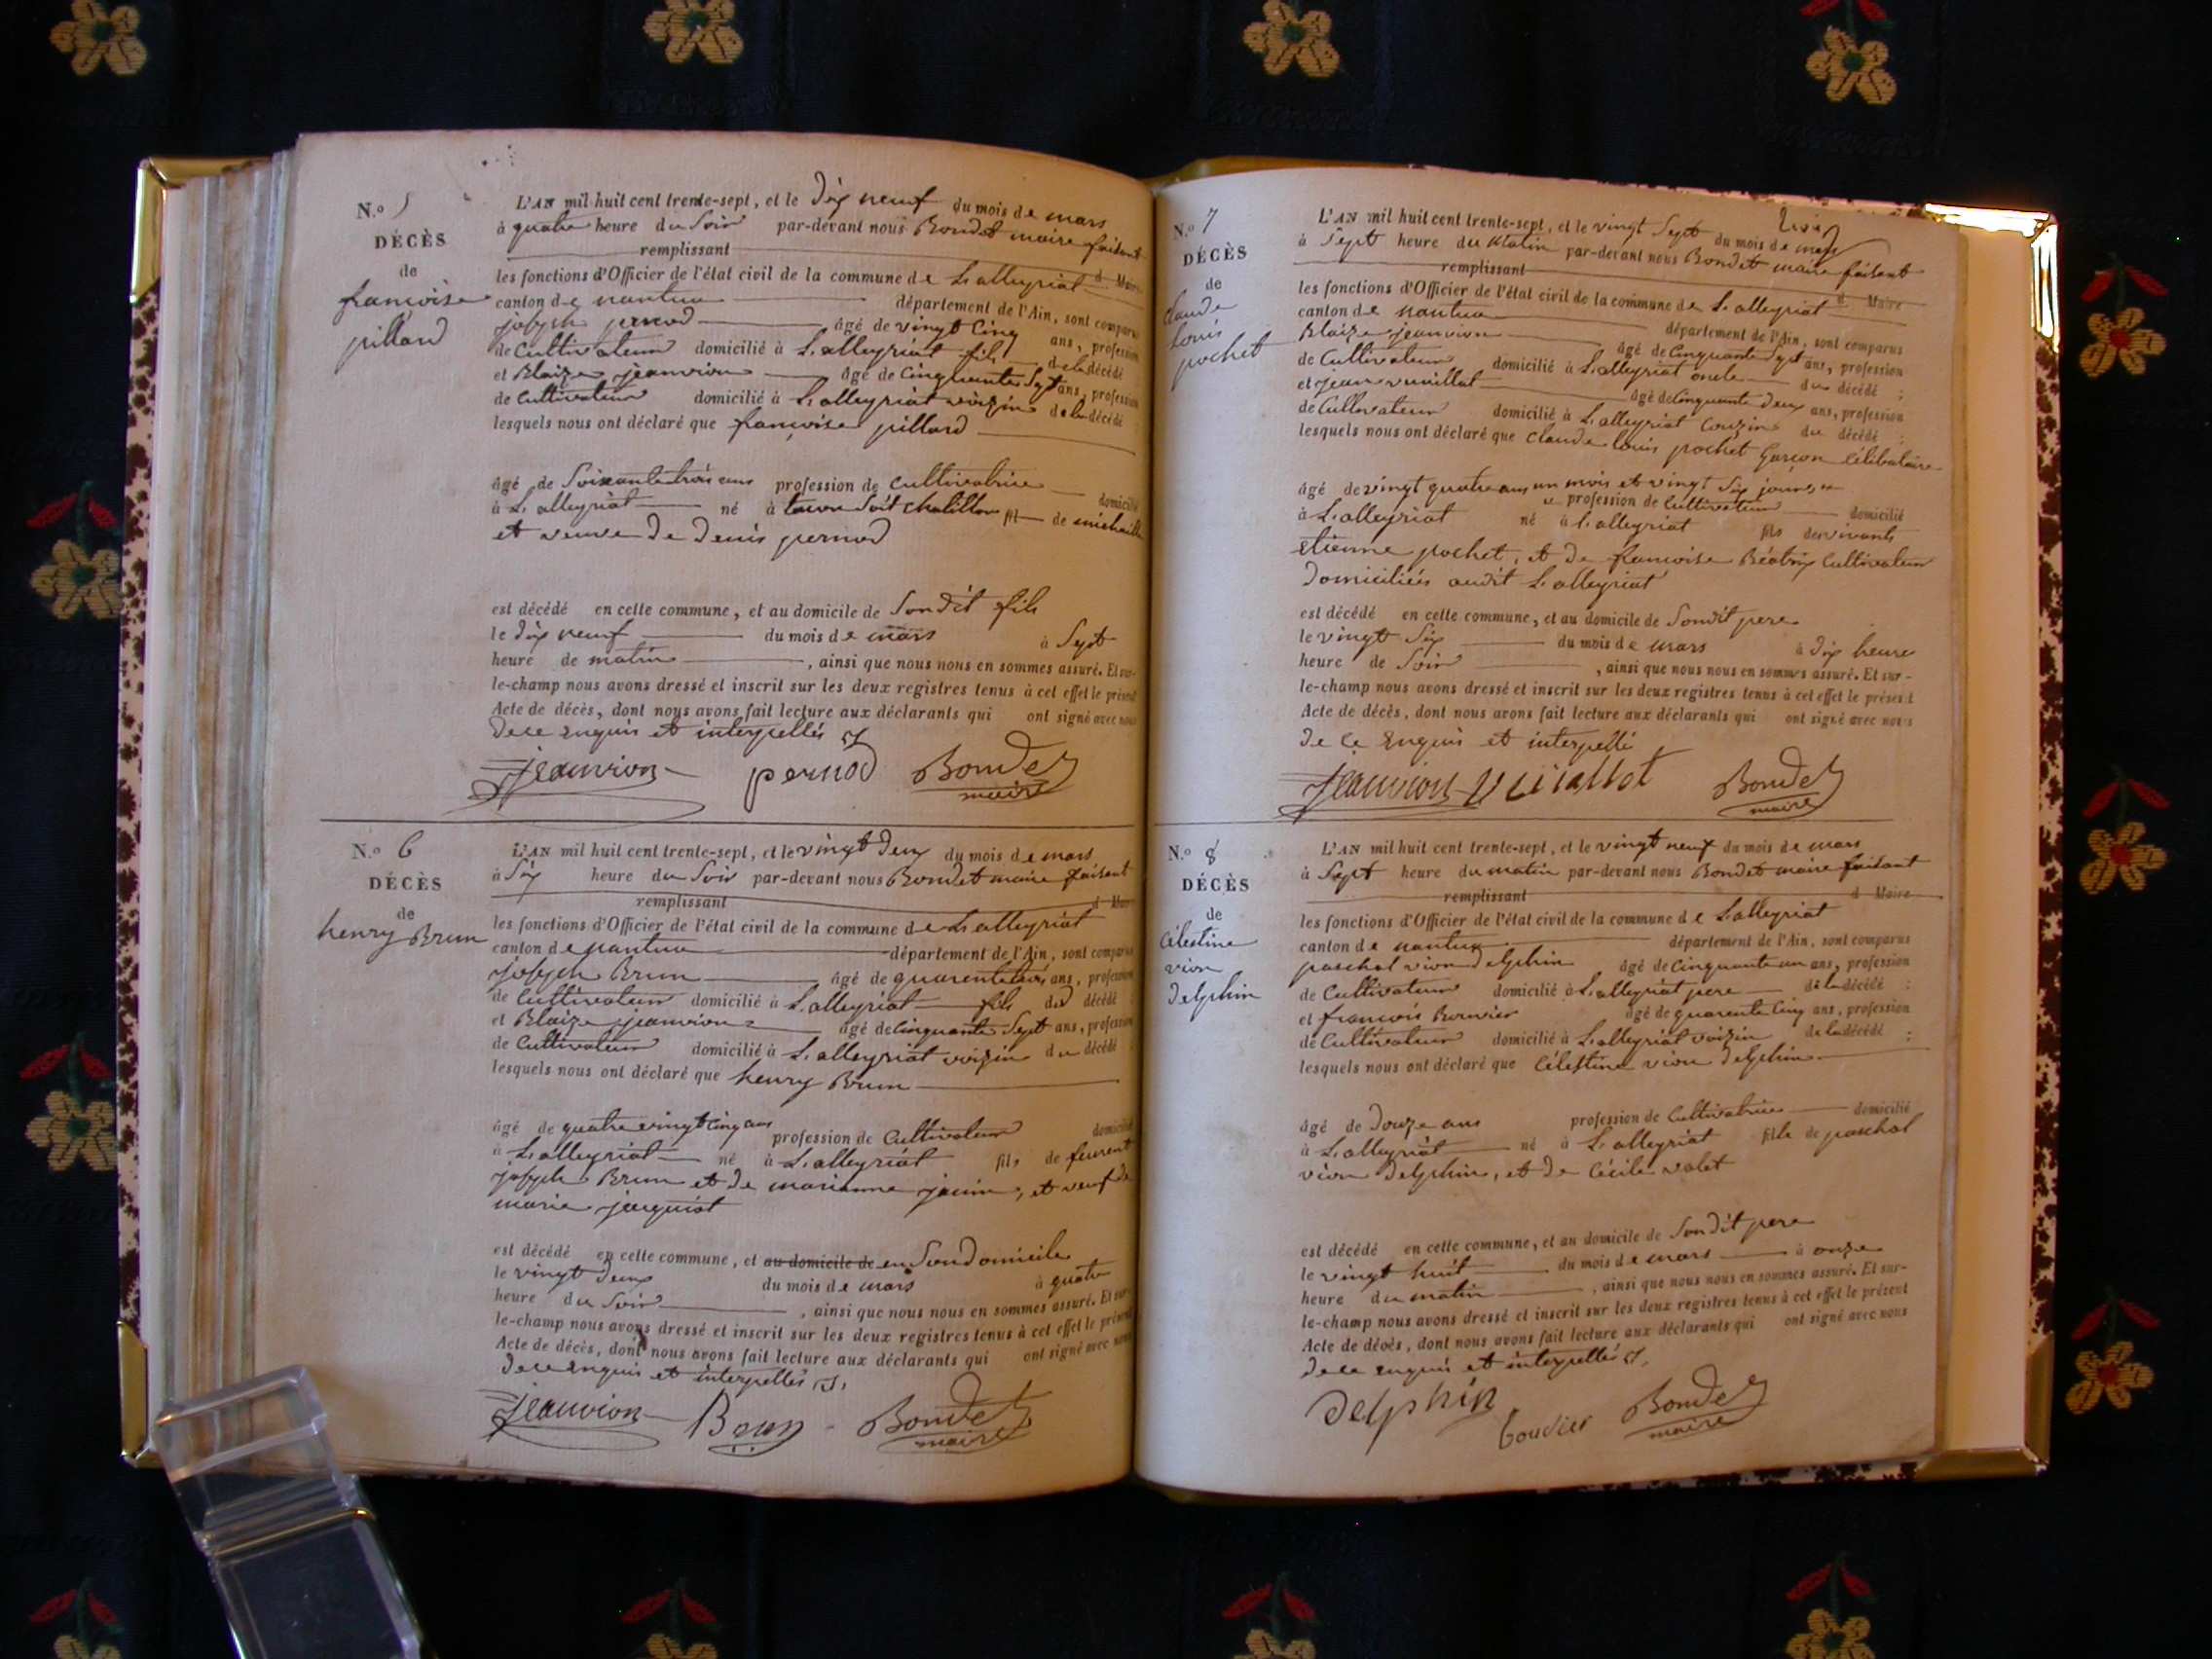 N.o 5
DÉCÈS
de
francoise
pillard
L'AN mil huit cent trente-sept, et le dix neuf du mois de mars
à quatre heure du Soir par-devant nous Bondet maire faisant
remplissant d Maire
les fonctions d'Officier de l'état civil de la commune de L'alleyriat
canton de nantua département de l'Ain, sont comparus
joseph pernod âgé de vingt Cinq ans, profession
de Cultivateur domicilié à L'alleyriat fils de la décédé
et Blaize jeanvion âgé de Cinquante Sept ans, profession
de Cultivateur domicilié à L'alleyriat voizin de la décédé
lesquels nous ont déclaré que francoise pillard
âgé de Soixante trois ans profession de Cultivatrice domicilié
à L'alleyriat né à tacon Soit chatillon fil de michaille
et veuve de denis pernod
est décédé en cette commune, et au domicile de Sondit fils
le dix neuf du mois de mars à Sept
heure de matin , ainsi que nous nous en sommes assuré. Et sur-
le-champ nous avons dressé et inscrit sur les deux registres tenus à cet effet le présent
Acte de décès, dont nous avons fait lecture aux déclarants qui ont signé avec nous
de ce Enquis et interpellés
Jeanvion pernod Bondet
maire
N.o 6
DÉCÈS
de
henry Brun
L'AN mil huit cent trente-sept, et le vingt deux du mois de mars
à Six heure du Soir par-devant nous Bondet maire faisant
remplissant d Maire
les fonctions d'Officier de l'état civil de la commune de L'alleyriat
canton de nantua département de l'Ain, sont comparus
joseph Brun âgé de quarente trois ans, profession
de Cultivateur domicilié à L'alleyriat fils du décédé
et Blaize jeanvion âgé de Cinquante Sept ans, profession
de Cultivateur domicilié à L'alleyriat voizin du décédé
lesquels nous ont déclaré que henry Brun
âgé de quatre vingt Cinq ans profession de Cultivateur domicilié
à L'alleyriat né à L'alleyriat fils de feu
joseph Brun et de marianne janin, et veuf de
marie jacquiot
est décédé en cette commune, et au domicile de en Son domicile
le vingt deux du mois de mars à quatre
heure du Soir , ainsi que nous nous en sommes assuré. Et sur-
le-champ nous avons dressé et inscrit sur les deux registres tenus à cet effet le présent
Acte de décès, dont nous avons fait lecture aux déclarants qui ont signé avec nous
de ce Enquis et interpellés
Jeanvion Brun Bondet
maire
N.o 7
DÉCÈS
de
claude
louis
pochet
L'AN mil huit cent trente-sept, et le vingt Sept du mois de mars
à Sept heure du Matin par-devant nous Bondet maire faisant
remplissant d Maire
les fonctions d'Officier de l'état civil de la commune de L'alleyriat
canton de nantua département de l'Ain, sont comparus
Blaize jeanvion âgé de Cinquante Sept ans, profession
de Cultivateur domicilié à L'alleyriat oncle du décédé ;
et jean vuillot âgé de Cinquante deux ans, profession
de Cultivateur domicilié à L'alleyriat Couzin du décédé ;
lesquels nous ont déclaré que claude louis pochet garcon Célibataire
âgé de vingt quatre ans un mois et vingt Six jours
profession de Cultivateur domicilié
à L'alleyriat né à L'alleyriat fils des vivants
etienne pochet, et de francoise Béatrix Cultivateur
domiciliés audit L'alleyriat
est décédé en cette commune, et au domicile de Sondit pere
le vingt Six du mois de mars à dix heure
heure de Soir , ainsi que nous nous en sommes assuré. Et sur-
le-champ nous avons dressé et inscrit sur les deux registres tenus à cet effet le présent
Acte de décès, dont nous avons fait lecture aux déclarants qui ont signé avec nous
de ce Enquis et interpellé
Jeanvion Bondet
maire
N.o 8
DÉCÈS
de
Célestine
vion
delphin
L'AN mil huit cent trente-sept, et le vingt neuf du mois de mars
à Sept heure du matin par-devant nous Bondet maire faisant
remplissant d Maire
les fonctions d'Officier de l'état civil de la commune de L'alleyriat
canton de nantua département de l'Ain, sont comparus
paschal vion delphin âgé de Cinquante un ans, profession
de Cultivateur domicilié à L'alleyriat pere de la décédé ;
et francois âgé de quarente Cinq ans, profession
de Cultivateur domicilié à L'alleyriat voizin de la décédé ;
lesquels nous ont déclaré que Célestine vion delphin
âgé de douze ans profession de Cultivatrice domicilié
à L'alleyriat né à L'alleyriat fille de paschal
vion delphin, et de Cécile valet
est décédé en cette commune, et au domicile de Sondit pere
le vingt huit du mois de mars à onze
heure du matin , ainsi que nous nous en sommes assuré. Et sur-
le-champ nous avons dressé et inscrit sur les deux registres tenus à cet effet le présent
Acte de décès, dont nous avons fait lecture aux déclarants qui ont signé avec nous
de ce Enquis et interpellés
Delphin Bondet
maire